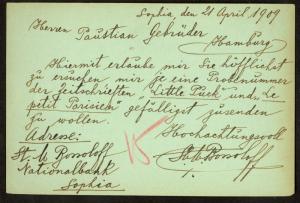 Sophia, den 21 April 1909
Herren Paustian Gebrüder
Hamburg
Hiermit erlaube mir Sie höflichst
zu ersuchen mir je eine Probenummer
der Zeitschriften "Little Puck" und "Le
petit Parisien" gefälligst zusenden
zu wollen.
Hochachtungsvoll
Adresse:
St. M.
Nationalbank
Sophia
15
St. M.